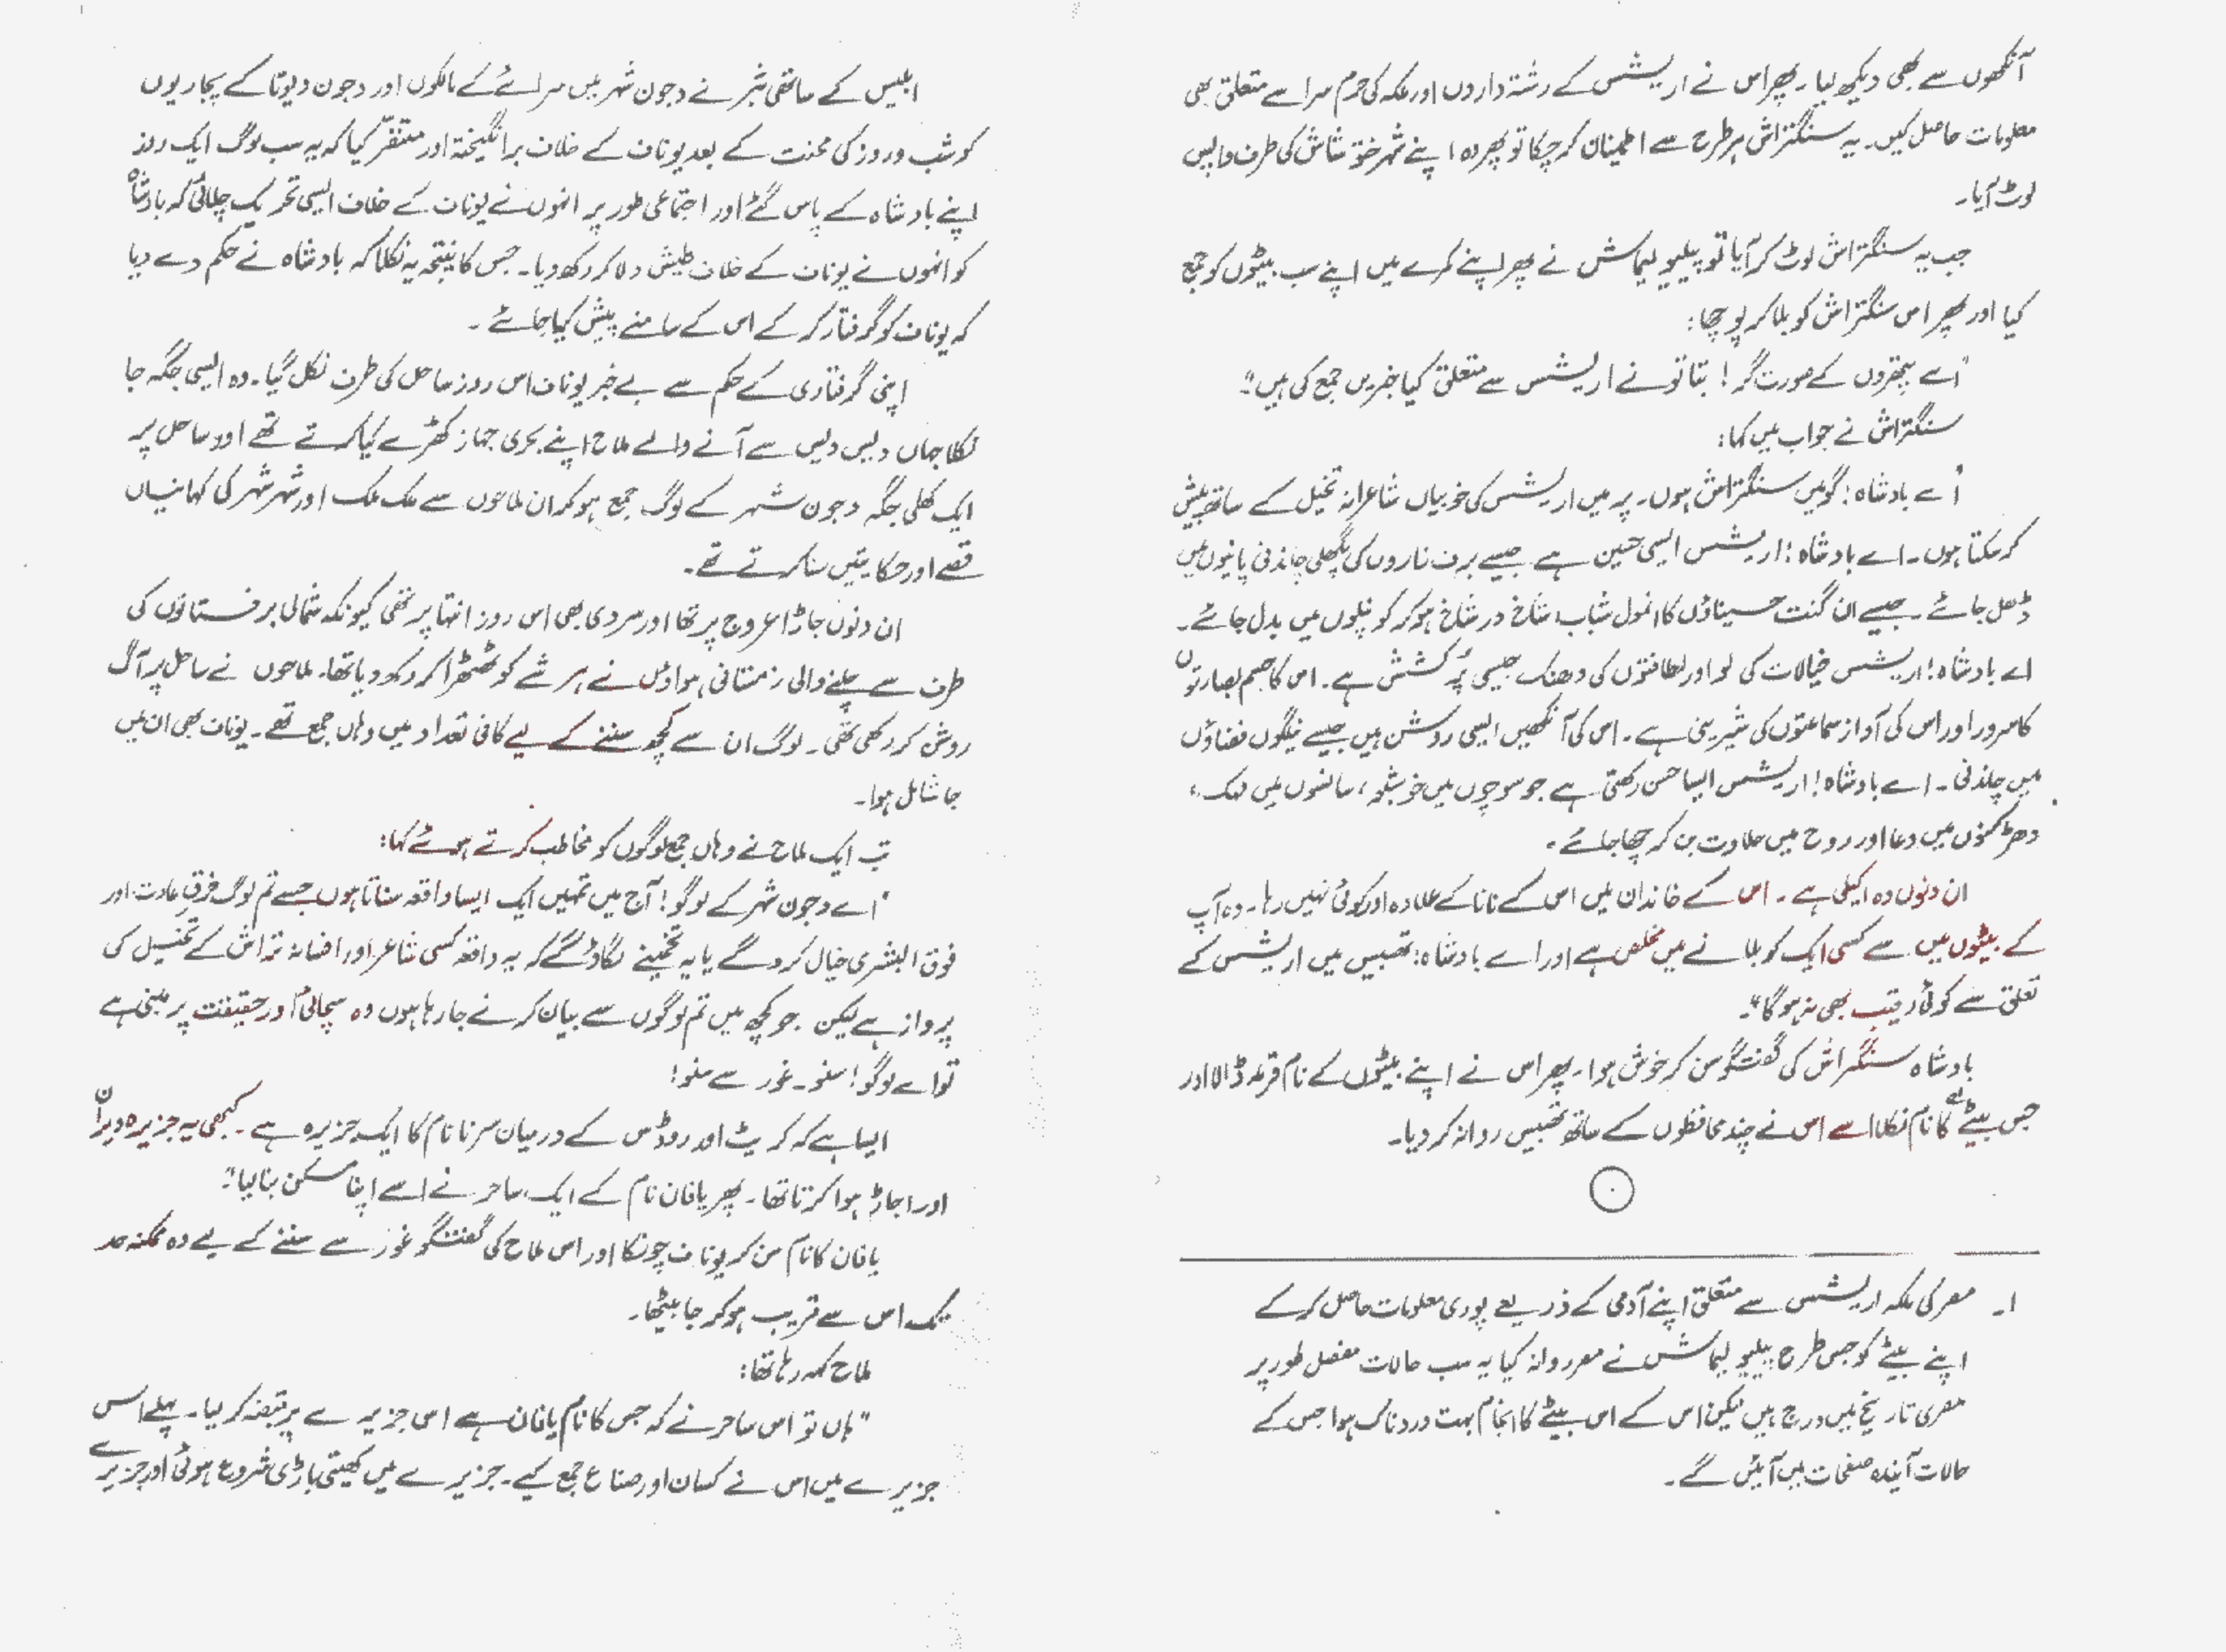 آنکھوں سے بھی دیکھ لیا۔ پھر اس نے اریشمس کے رشتہ داروں اور ملکہ کی حرم سرا سے متعلق بھی
معلومات حاصل کیں۔ یہ سنگتراش ہر طرح سے اطمینان کر چکا تو پھر وہ اپنے شہر ختو شاش کی طرف واپس
لوٹ آیا۔
جب یہ سنگتراش لوٹ کر آیا تو پیلیو لیماش نے پھر اپنے کمرے میں اپنے سب بیٹوں کو جمع
کیا اور پھر اس سنگتراش کو بلا کر پوچھا:
"اے پتھروں کے صورت گر! بتا تو نے اریشمس سے متعلق کیا خبریں جمع کی ہیں"۔
سنگتراش نے جواب میں کہا:
"اے بادشاہ! گو میں سنگتراش ہوں۔ پر میں اریشمس کی خوبیاں شاعرانہ تخیل کے ساتھ پیش
کر سکتا ہوں۔ اے بادشاہ! اریشمس ایسی حسین ہے جیسے برف زاروں کی پگھلی چاندنی پانیوں میں
ڈھل جائے۔ جیسے ان گنت حسیناؤں کا انمول شباب شاخ در شاخ ہو کر کونپلوں میں بدل جائے۔
اے بادشاہ! اریشمس خیالات کی لو اور لطافتوں کی دھنک جیسی پُرکشش ہے۔ اس کا جسم بصارتوں
کا سرور اور اس کی آواز سماعتوں کی شیرینی ہے۔ اس کی آنکھیں ایسی روشن ہیں جیسے نیلگوں فضاؤں
میں چاندنی۔ اے بادشاہ! اریشمس ایسا حسن رکھتی ہے جو سوچوں میں خوشبو، سانسوں میں مہک،
دھڑکنوں میں دعا اور روح میں حلاوت بن کر چھا جائے۔
ان دنوں وہ اکیلی ہے۔ اس کے خاندان میں اس کے نانا کے علاوہ اور کوئی نہیں رہا۔ وہ آپ
کے بیٹوں میں سے کسی ایک کو بلانے میں مخلص ہے اور اے بادشاہ! تھیبس میں اریشمس کے
تعلق سے کوئی رقیب بھی نہ ہوگا"۔
بادشاہ سنگتراش کی گفتگو سن کر خوش ہوا۔ پھر اس نے اپنے بیٹوں کے نام قرعہ ڈالا اور
جس بیٹے کا نام نکلا اسے اس نے چند محافظوں کے ساتھ تھیبس روانہ کر دیا۔
۱۔ مصر کی ملکہ اریشمس سے متعلق اپنے آدمی کے ذریعے پوری معلومات حاصل کر کے
اپنے بیٹے کو جس طرح پیلیو لیماش نے مصر روانہ کیا یہ سب حالات مفصل طور پر
مصری تاریخ میں درج ہیں لیکن اس کے اس بیٹے کا انجام بہت دردناک ہوا جس کے
حالات آیندہ صفحات میں آئیں گے۔
ابلیس کے ساتھی ثبر نے دجون شہر میں سرائے کے مالکوں اور دجون دیوتا کے پجاریوں
کو شب و روز کی محنت کے بعد یوناف کے خلاف برانگیختہ اور متنفر کیا کہ یہ سب لوگ ایک روز
اپنے بادشاہ کے پاس گئے اور اجتماعی طور پر انہوں نے یوناف کے خلاف ایسی تحریک چلائی کہ بادشاہ
کو انہوں نے یوناف کے خلاف طیش دلا کر رکھ دیا۔ جس کا نتیجہ یہ نکلا کہ بادشاہ نے حکم دے دیا
کہ یوناف کو گرفتار کر کے اس کے سامنے پیش کیا جائے۔
اپنی گرفتاری کے حکم سے بے خبر یوناف اس روز ساحل کی طرف نکل گیا۔ وہ ایسی جگہ جا
نکلا جہاں دیس دیس سے آنے والے ملاح اپنے بحری جہاز کھڑے کیا کرتے تھے اور ساحل پر
ایک کھلی جگہ دجون شہر کے لوگ جمع ہو کر ان ملاحوں سے ملک ملک اور شہر شہر کی کہانیاں
قصے اور حکایتیں سنا کرتے تھے۔
ان دنوں جاڑا عروج پر تھا اور سردی بھی اس روز انتہا پر تھی کیونکہ شمالی برفستانوں کی
طرف سے چلنے والی زمستانی ہواؤں نے ہر شے کو ٹھٹھرا کر رکھ دیا تھا۔ ملاحوں نے ساحل پر آگ
روشن کر رکھی تھی۔ لوگ ان سے کچھ سننے کے لیے کافی تعداد میں وہاں جمع تھے۔ یوناف بھی ان میں
جا شامل ہوا۔
تب ایک ملاح نے وہاں جمع لوگوں کو مخاطب کرتے ہوئے کہا:
"اے دجون شہر کے لوگو! آج میں تمہیں ایک ایسا واقعہ سناتا ہوں جسے تم لوگ خرقِ عادت اور
فوق البشری خیال کرو گے یا یہ تخمینے لگاؤ گے کہ یہ واقعہ کسی شاعر اور افسانہ تراش کے تخیل کی
پرواز ہے لیکن جو کچھ میں تم لوگوں سے بیان کرنے جا رہا ہوں وہ سچائی اور حقیقت پر مبنی ہے
تو اے لوگو! سنو۔ غور سے سنو!
ایسا ہے کہ کریٹ اور روڈس کے درمیان سرنا نام کا ایک جزیرہ ہے۔ کبھی یہ جزیرہ ویران
اور اجاڑ ہوا کرتا تھا۔ پھر یافان نام کے ایک ساحر نے اسے اپنا مسکن بنا لیا"۔
یافان کا نام سن کر یوناف چونکا اور اس ملاح کی گفتگو غور سے سننے کے لیے وہ ممکنہ حد
تک اس سے قریب ہو کر جا بیٹھا۔
ملاح کہہ رہا تھا:
"ہاں تو اس ساحر نے کہ جس کا نام یافان ہے اس جزیرے پر قبضہ کر لیا۔ پہلے اس
جزیرے میں اس نے کسان اور صناع جمع کیے۔ جزیرے میں کھیتی باڑی شروع ہوئی اور جزیرے